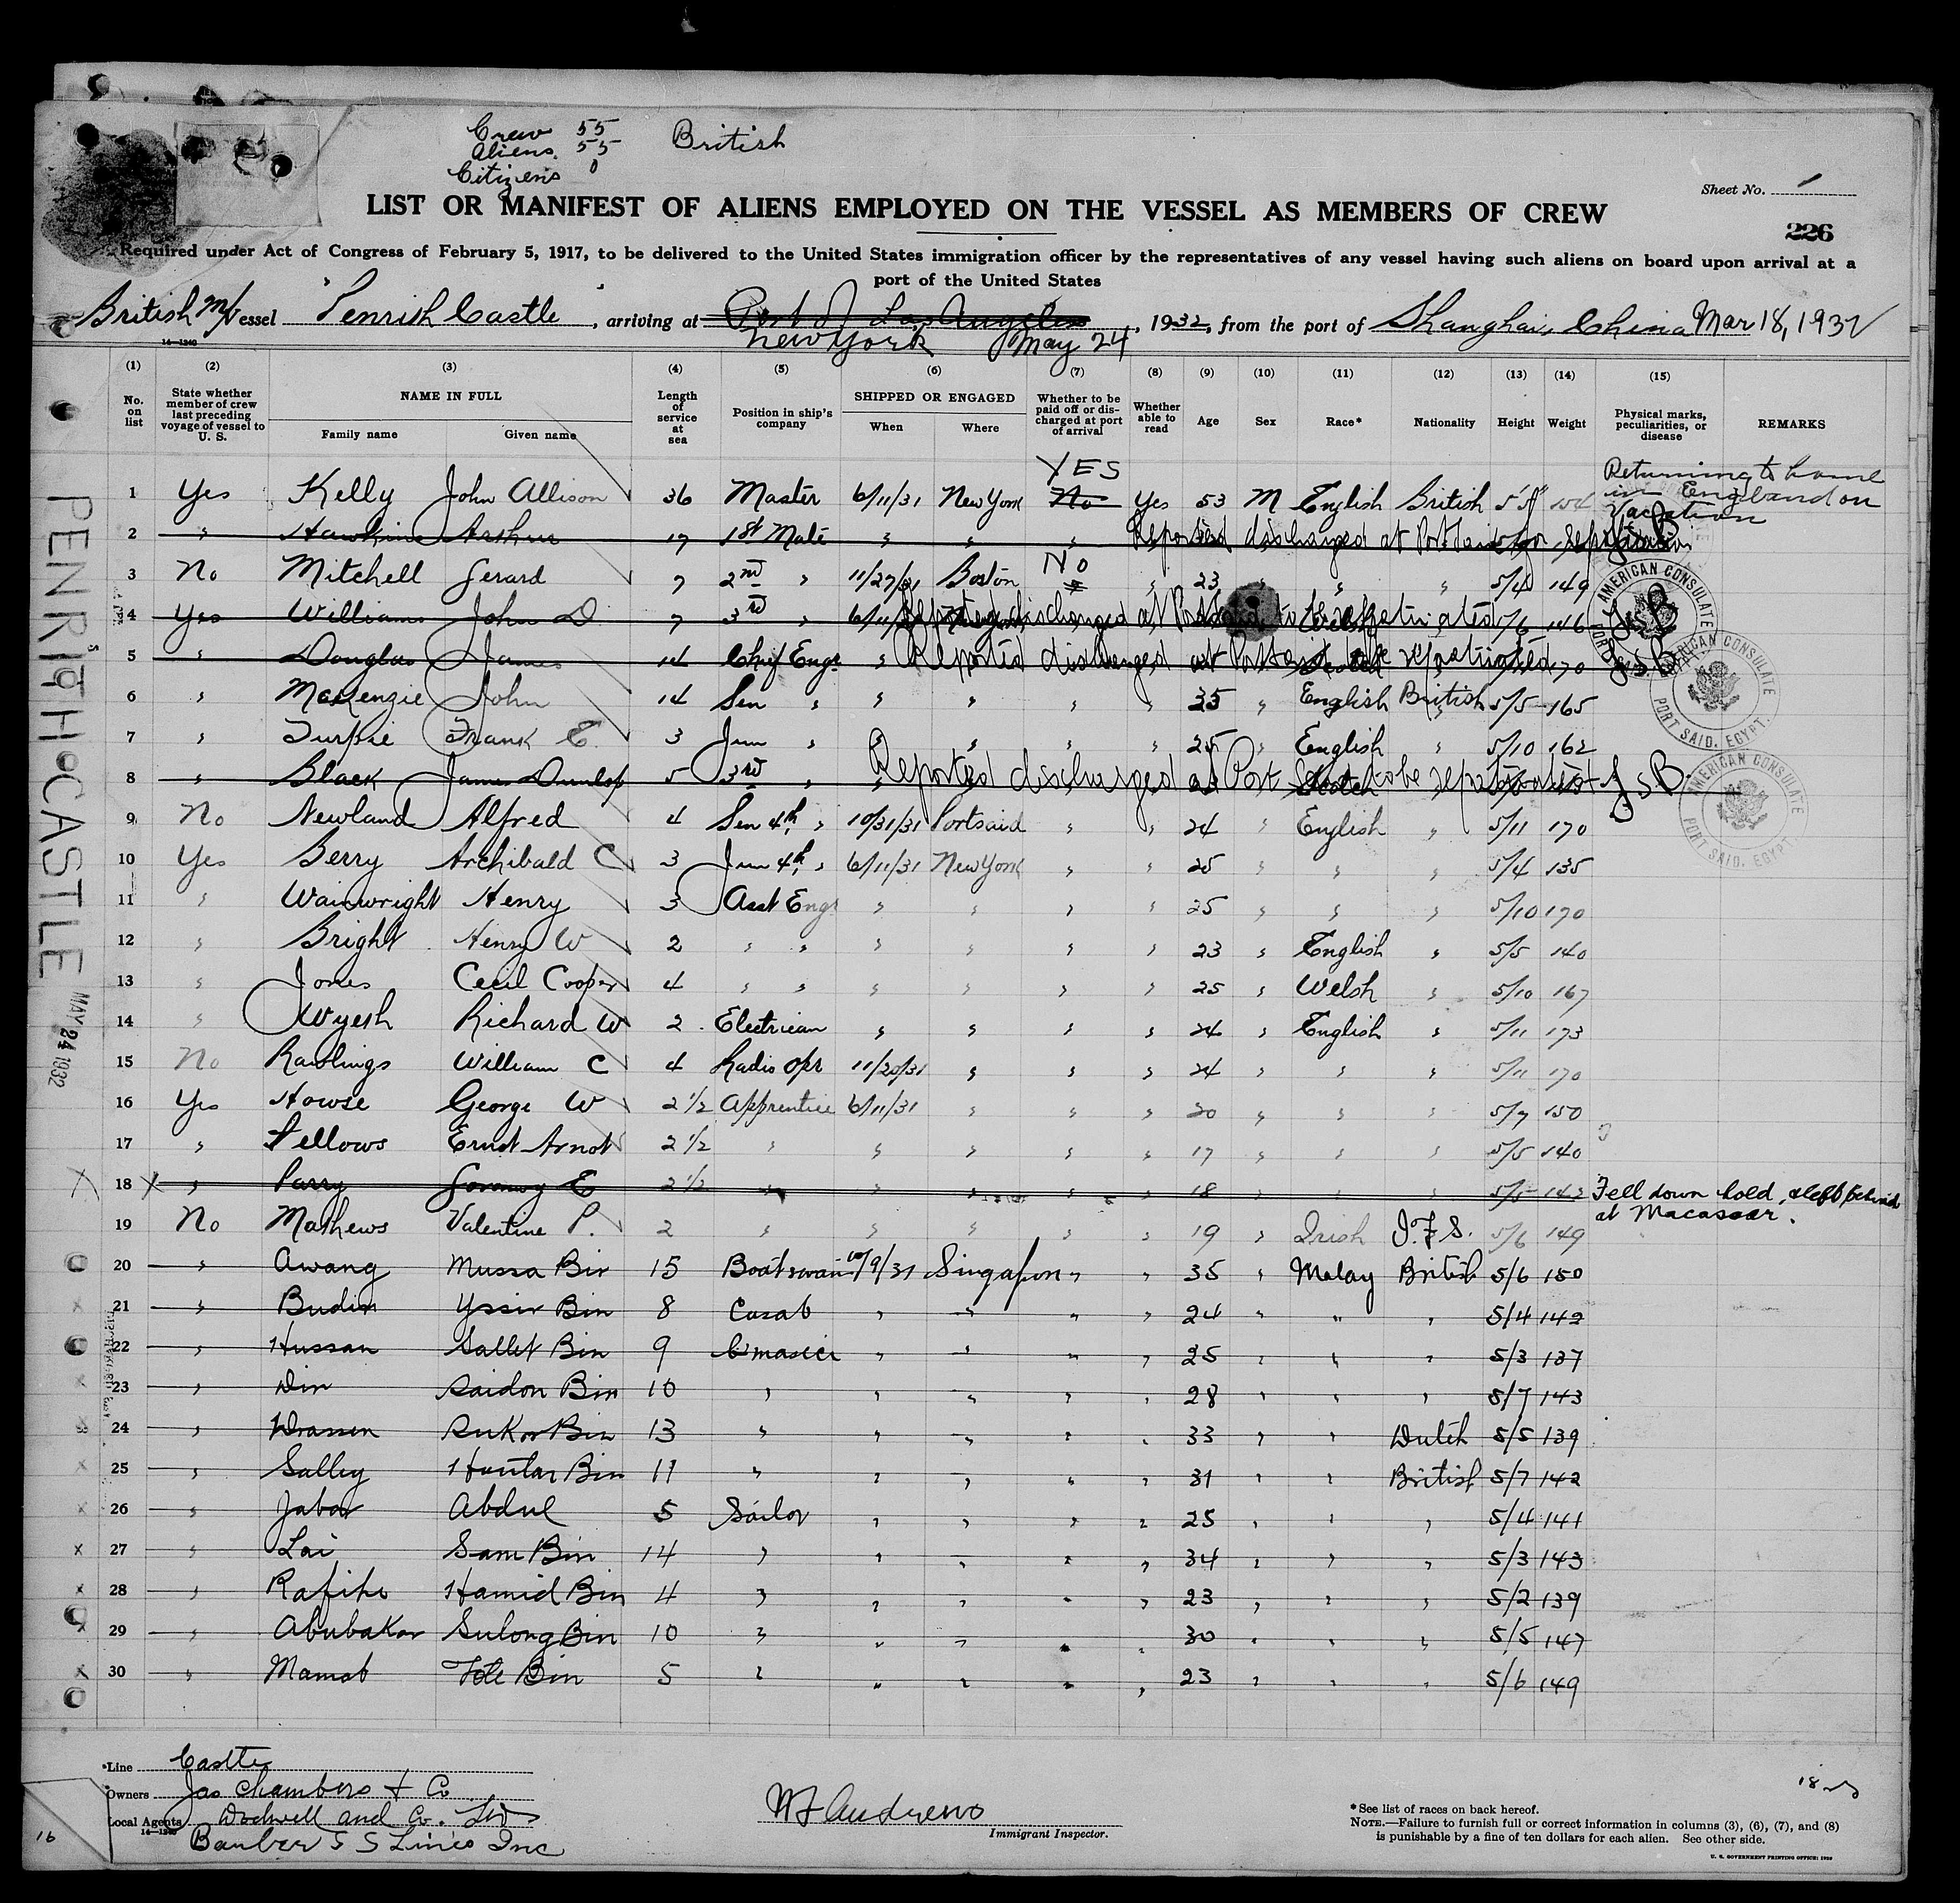 Crew 55
Aliens 55
Citizens 0
British
Sheet No. 1
LIST OR MANIFEST OF ALIENS EMPLOYED ON THE VESSEL AS MEMBERS OF CREW
226
Required under Act of Congress of February 5, 1917, to be delivered to the United States immigration officer by the representatives of any vessel having such aliens on board upon arrival at a
port of the United States
British M/Vessel "Penrith Castle", arriving at Port of Los Angeles, 1932, from the port of Shanghai, China Mar 18, 1932
New York May 24
14—1240
(1) (2) (3) (4) (5) (6) (7) (8) (9) (10) (11) (12) (13) (14) (15)
No. on list
State whether member of crew last preceding voyage of vessel to U. S.
NAME IN FULL
Family name Given name
Length of service at sea
Position in ship's company
SHIPPED OR ENGAGED
When Where
Whether to be paid off or discharged at port of arrival
Whether able to read
Age
Sex
Race*
Nationality
Height
Weight
Physical marks, peculiarities, or disease
REMARKS
YES
1 Yes Kelly John Allison 36 Master 6/11/31 New York No Yes 53 M English British Returning to home in England on Vacation
2 " Hawkins Arthur 17 1st Mate " " " Reported discharged at Port Said for repatriation
3 No Mitchell Gerard 7 2nd " 11/27/31 Boston No " 23 " " " 5/4 149
4 Yes Williams John D 7 3rd " 6/11/31 Reported discharged at Port Said to be repatriated 5/6 146 J.S.B.
5 " Douglas James 14 Chief Engr " Reported discharged at Port Said to be repatriated 170 J.S.B.
6 " McKenzie John 14 Sen " " " " " 35 " English British 5/5 165
7 " Turpie Frank E. 3 Jun " " " " " 25 " English " 5/10 162
8 " Black James Dunlop 5 3rd " Reported discharged at Port Said to be repatriated Scotch J.S.B.
9 No Newland Alfred 4 Sen 4th " 10/31/31 Portsaid " " 24 " English " 5/11 170
10 Yes Berry Archibald C 3 Jun 4th " 6/11/31 New York " " 25 " " " 5/4 135
11 " Wainwright Henry 3 Asst Engr " " " " 25 " " " 5/10 170
12 " Bright Henry W 2 " " " " " " 23 " English " 5/5 140
13 " Jones Cecil Cooper 4 " " " " " " 25 " Welsh " 5/10 167
14 " Wyesh Richard W 2 Electrican " " " " 24 " English " 5/11 173
15 No Rawlings William C 4 Radio Opr 11/20/31 " " " 24 " " " 5/11 170
16 Yes Howse George W 2 1/2 Apprentice 6/11/31 " " " 20 " " " 5/7 150
17 " Fellows Ernst Arnot 2 1/2 " " " " " 17 " " " 5/5 140
18 " Parry Goronwy E 2 1/2 " " " " " 18 " " " 5/5 142 Fell down hold, & left behind
at Macassar.
19 No Mathews Valentine P. 2 " " " " " 19 " Irish I.F.S. 5/6 149
20 " Awang Mussa Bin 15 Boatswain 10/9/31 Singapore " " 35 " Malay British 5/6 150
21 " Budin Yssin Bin 8 Casab " " " 24 " " " 5/4 142
22 " Hussan Sallet Bin 9 " " " " 25 " " " 5/3 137
23 " Din Saidon Bin 10 " " " " " 28 " " " 5/7 143
24 " Drassen Sukor Bin 13 " " " " " 33 " " Dutch 5/5 139
25 " Salley Huntar Bin 11 " " " " " 31 " " British 5/7 142
26 " Jabar Abdul 5 Sailor " " " " 25 " " " 5/4 141
27 " Lai Sam Bin 14 " " " " " 34 " " " 5/3 143
28 " Hamid Bin 4 " " " " " 23 " " " 5/2 139
29 " Abubakar Sulong Bin 10 " " " " " 30 " " " 5/5 147
30 " Mamat Bin 5 " " " " " 23 " " " 5/6 149
PENRITH CASTLE
MAY 24 1932
AMERICAN CONSULATE
PORT SAID, EGYPT.
AMERICAN CONSULATE
PORT SAID, EGYPT.
Line Castle
Owners Jas Chambers & Co
Local Agents Dodwell and Co. Ltd
14—1240
Barber S S Lines Inc
16
W J Andrews
Immigrant Inspector.
* See list of races on back hereof.
NOTE.—Failure to furnish full or correct information in columns (3), (6), (7), and (8)
is punishable by a fine of ten dollars for each alien. See other side.
U. S. GOVERNMENT PRINTING OFFICE: 1929